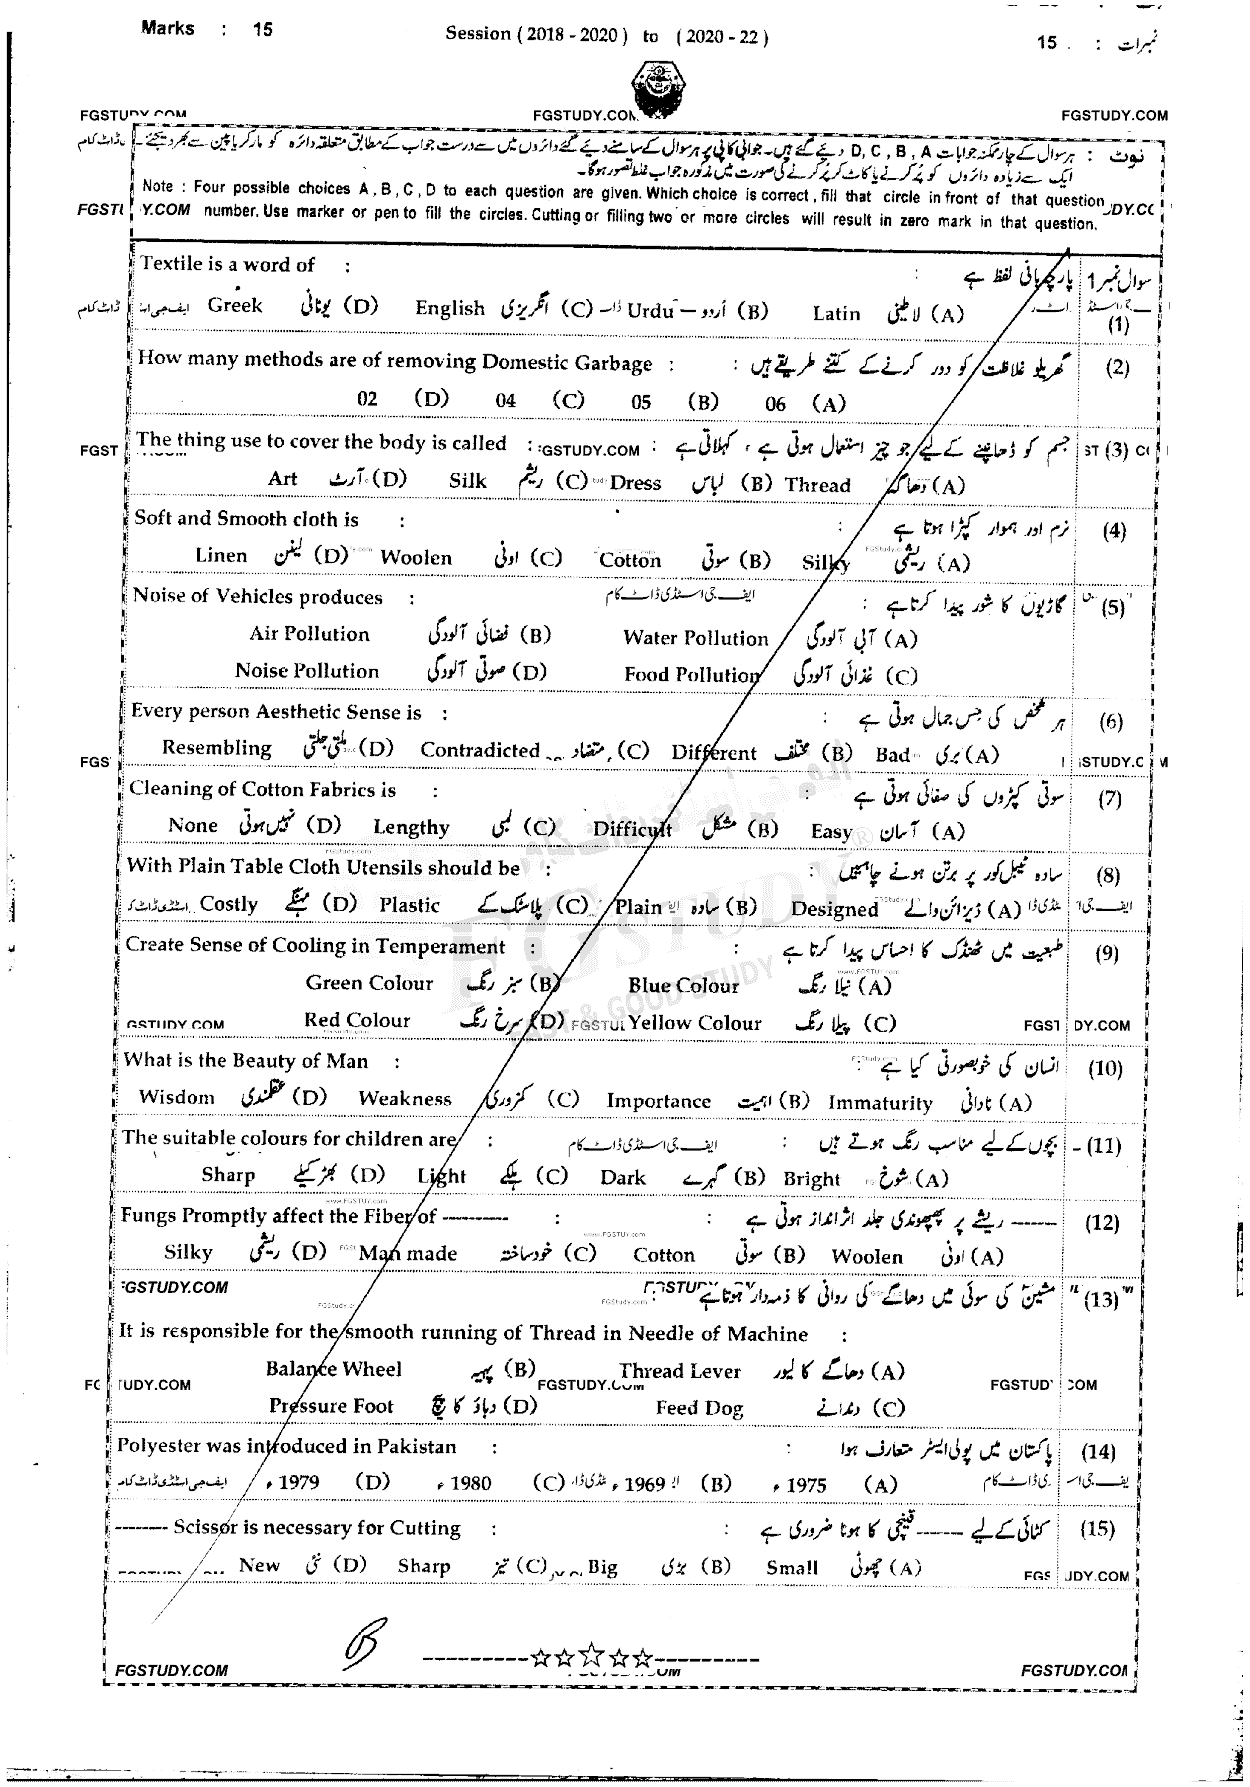 Marks : 15 Session ( 2018 - 2020 ) to ( 2020 - 22 ) 15 : نمبرات
FGSTUDY.COM FGSTUDY.COM FGSTUDY.COM
نوٹ : ہر سوال کے چار ممکنہ جوابات D, C, B, A دیئے گئے ہیں۔ جوابی کاپی پر ہر سوال کے سامنے دیئے گئے دائروں میں سے درست جواب کے مطابق متعلقہ دائرہ کو مارکر یا پین سے بھر دیجئے۔
ایک سے زیادہ دائروں کو پُر کرنے یا کاٹ کر پُر کرنے کی صورت میں مذکورہ جواب غلط تصور ہوگا۔
Note : Four possible choices A , B , C , D to each question are given. Which choice is correct , fill that circle in front of that question
number. Use marker or pen to fill the circles. Cutting or filling two or more circles will result in zero mark in that question.
Textile is a word of : : پارچہ بافی لفظ ہے سوال نمبر 1
Greek یونانی (D) English انگریزی (C) Urdu اُردو (B) Latin لاطینی (A) (1)
How many methods are of removing Domestic Garbage : : گھریلو غلاظت کو دور کرنے کے کتنے طریقے ہیں (2)
02 (D) 04 (C) 05 (B) 06 (A)
The thing use to cover the body is called : : جسم کو ڈھانپنے کے لیے جو چیز استعمال ہوتی ہے ، کہلاتی ہے (3)
Art آرٹ (D) Silk ریشم (C) Dress لباس (B) Thread دھاگہ (A)
Soft and Smooth cloth is : : نرم اور ہموار کپڑا ہوتا ہے (4)
Linen لینن (D) Woolen اونی (C) Cotton سوتی (B) Silky ریشمی (A)
Noise of Vehicles produces : ایف جی اسٹڈی ڈاٹ کام : گاڑیوں کا شور پیدا کرتا ہے (5)
Air Pollution فضائی آلودگی (B) Water Pollution آبی آلودگی (A)
Noise Pollution صوتی آلودگی (D) Food Pollution غذائی آلودگی (C)
Every person Aesthetic Sense is : : ہر شخص کی حس جمال ہوتی ہے (6)
Resembling ملتی جلتی (D) Contradicted متضاد (C) Different مختلف (B) Bad بری (A)
Cleaning of Cotton Fabrics is : : سوتی کپڑوں کی صفائی ہوتی ہے (7)
None نہیں ہوتی (D) Lengthy لمبی (C) Difficult مشکل (B) Easy آسان (A)
With Plain Table Cloth Utensils should be : : سادہ ٹیبل کور پر برتن ہونے چاہئیں (8)
Costly مہنگے (D) Plastic پلاسٹک کے (C) Plain سادہ (B) Designed ڈیزائن والے (A)
Create Sense of Cooling in Temperament : : طبعیت میں ٹھنڈک کا احساس پیدا کرتا ہے (9)
Green Colour سبز رنگ (B) Blue Colour نیلا رنگ (A)
Red Colour سرخ رنگ (D) Yellow Colour پیلا رنگ (C)
What is the Beauty of Man : : انسان کی خوبصورتی کیا ہے (10)
Wisdom عقلمندی (D) Weakness کمزوری (C) Importance اہمیت (B) Immaturity نادانی (A)
The suitable colours for children are : ایف جی اسٹڈی ڈاٹ کام : بچوں کے لیے مناسب رنگ ہوتے ہیں (11)
Sharp بھڑکیلے (D) Light ہلکے (C) Dark گہرے (B) Bright شوخ (A)
Fungs Promptly affect the Fiber of --------- : : ------ ریشے پر پھپھوندی جلد اثر انداز ہوتی ہے (12)
Silky ریشمی (D) Man made خود ساختہ (C) Cotton سوتی (B) Woolen اونی (A)
مشین کی سوئی میں دھاگے کی روانی کا ذمہ دار ہوتا ہے (13)
It is responsible for the smooth running of Thread in Needle of Machine :
Balance Wheel پہیہ (B) Thread Lever دھاگے کا لیور (A)
FGSTUDY.COM
Pressure Foot دباؤ کا پیچ (D) Feed Dog دندانے (C)
Polyester was introduced in Pakistan : : پاکستان میں پولی ایسٹر متعارف ہوا (14)
1979ء (D) 1980ء (C) 1969ء (B) 1975ء (A)
-------- Scissor is necessary for Cutting : : کٹائی کے لیے ------ قینچی کا ہونا ضروری ہے (15)
New نئی (D) Sharp تیز (C) Big بڑی (B) Small چھوٹی (A)
B ----------☆☆☆☆☆----------
FGSTUDY.COM FGSTUDY.COM